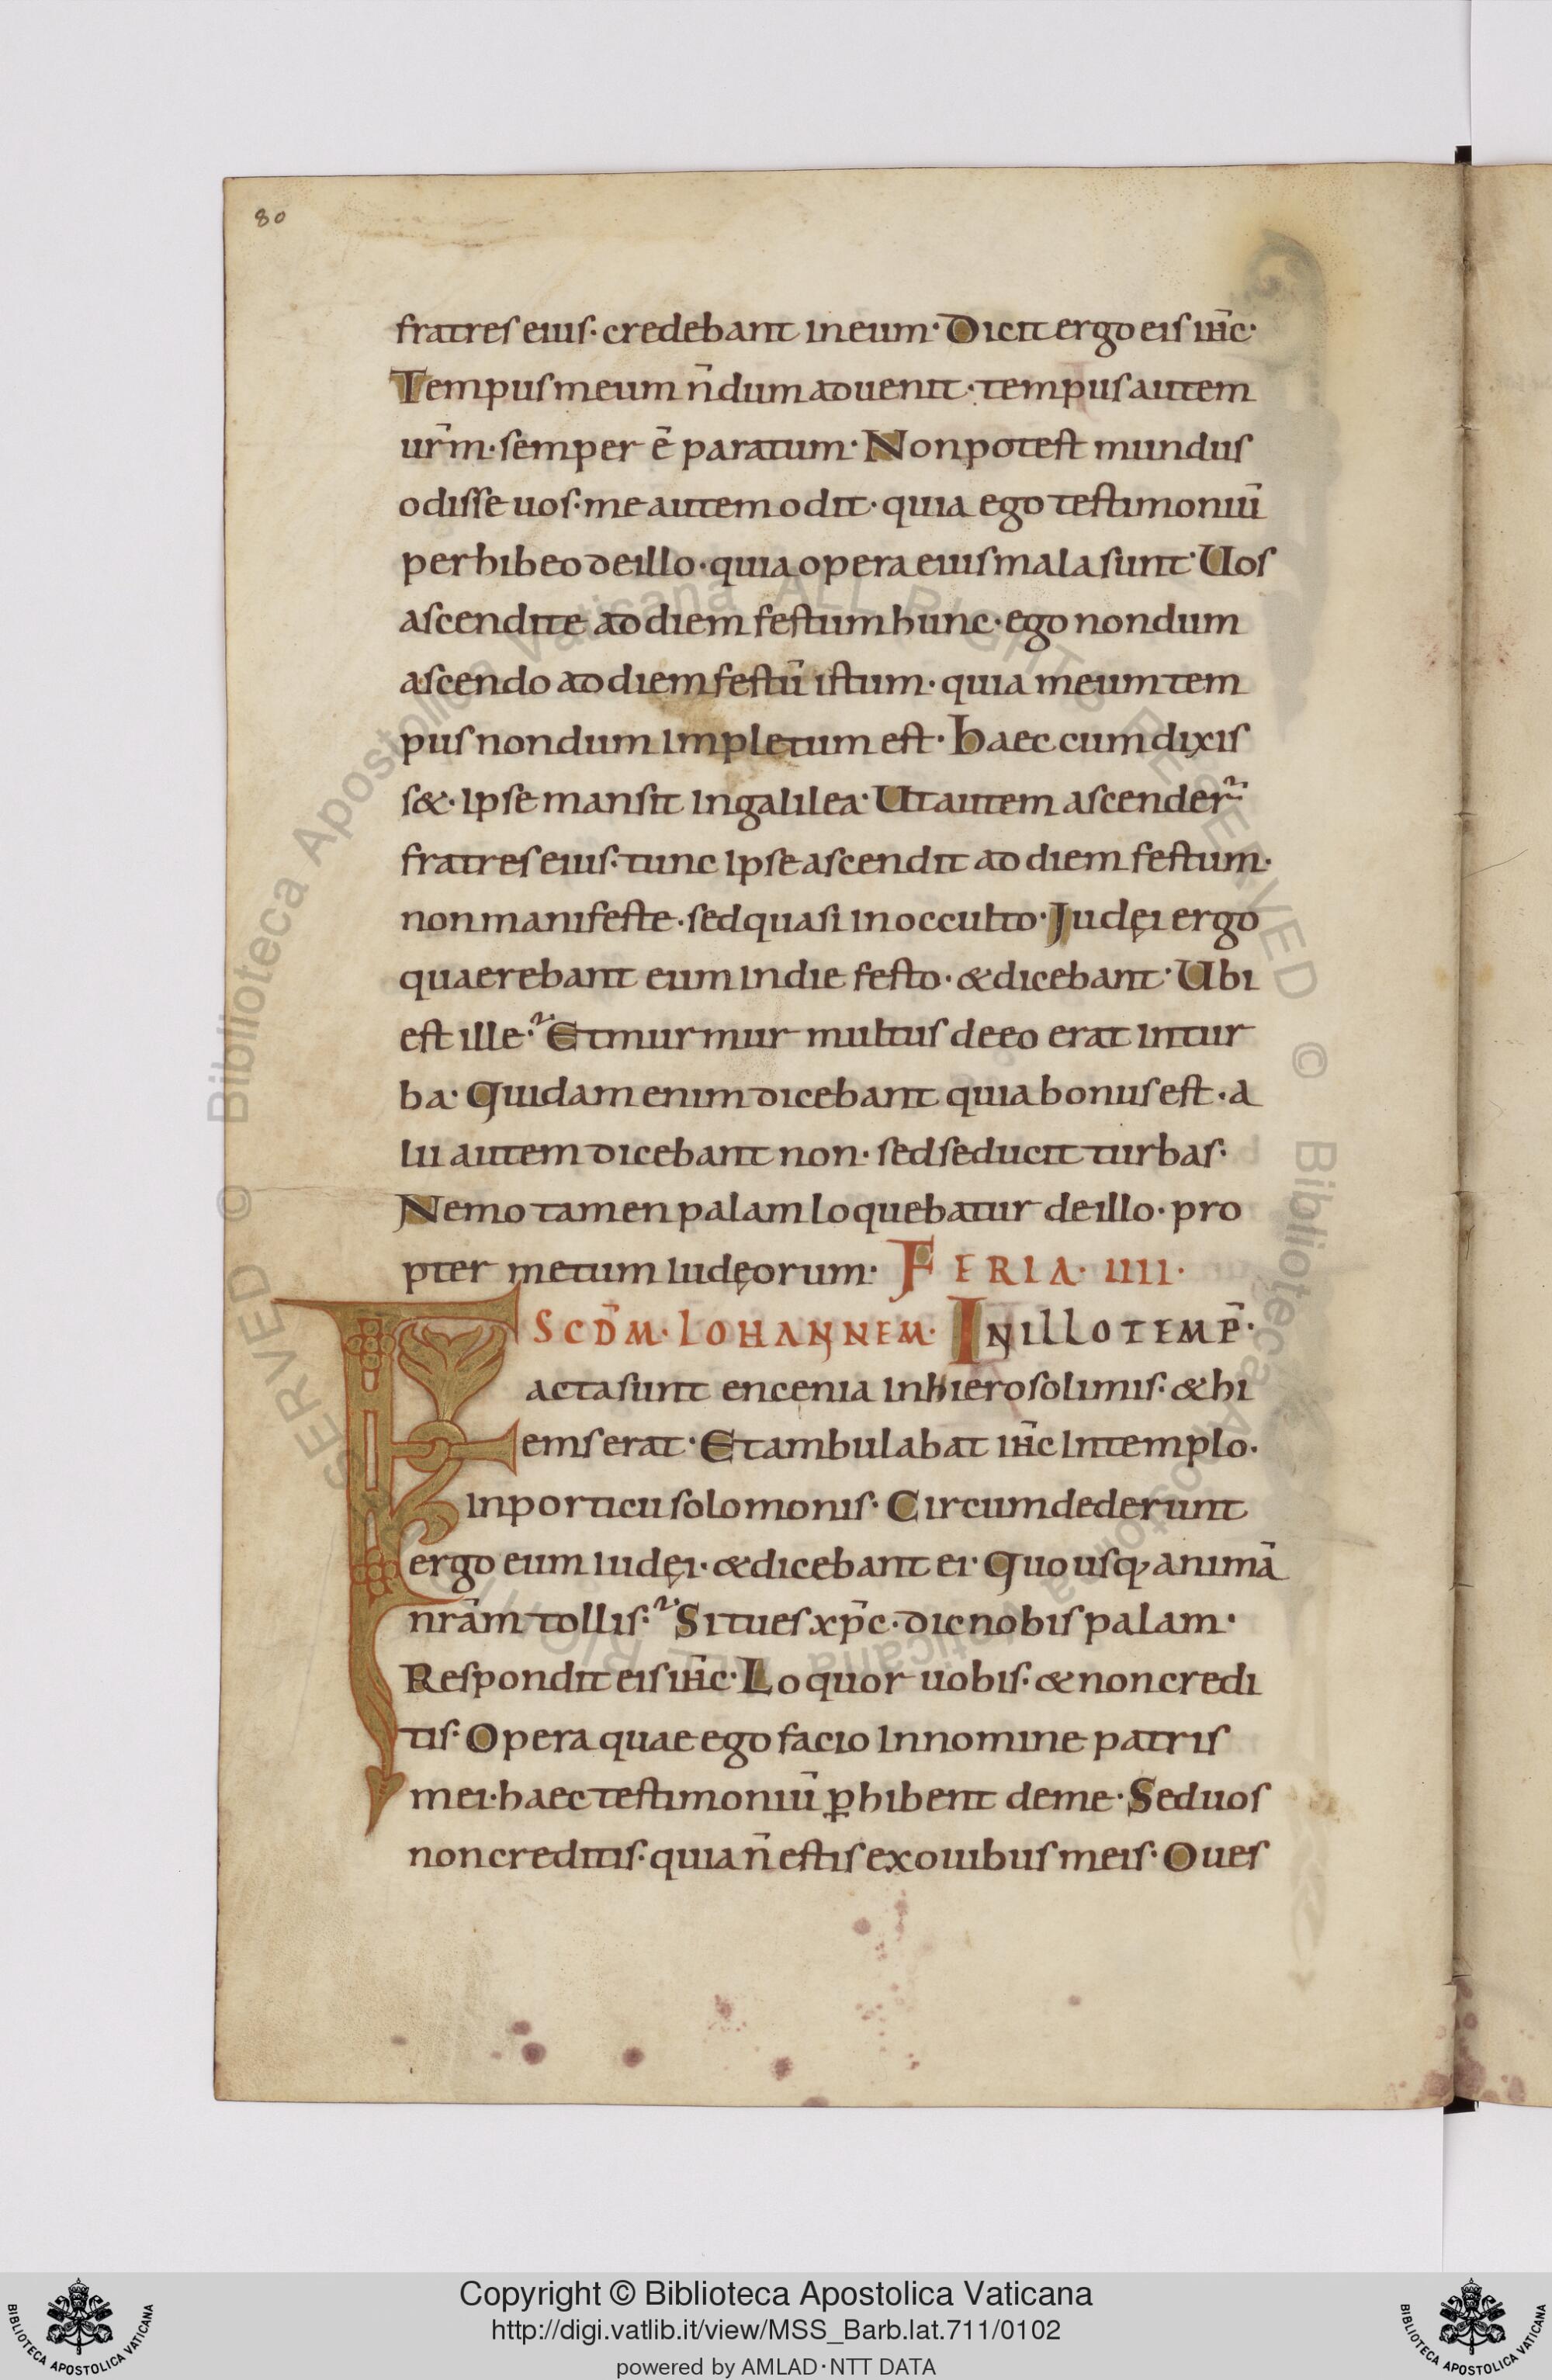 80
fratres eius· credebant in eum· Dicit ergo eis ih̄c·
Tempus meum n̄dum aduenit· tempus autem
ur̄m· semper ē paratum· Non potest mundus
odisse uos· me autem odit· quia ego testimoniū
perhibeo de illo· quia opera eius mala sunt· Uos
ascendite ad diem festum hunc· ego nondum
ascendo ad diem festū istum· quia meum tem
pus nondum impletum est· haec cum dixis
s&· ipse mansit in galilea· Ut autem ascender̃
fratres eius· tunc ipse ascendit ad diem festum·
non manifeste· sed quasi in occulto· Judęi ergo
quaerebant eum in die festo· & dicebant· Ubi
est ille? Et murmur multus de eo erat in tur
ba· Quidam enim dicebant quia bonus est· a
lii autem dicebant non· sed seducit turbas·
Nemo tamen palam loquebatur de illo· pro
pter metum iudęorum· FERIA· IIII·
SCD̄M· IOHANNEM· IN ILLO TEMP̄·
Facta sunt encenia in hierosolimis· & hi
ems erat· Et ambulabat ih̄c in templo·
in porticu solomonis· Circumdederunt
ergo eum iudęi· & dicebant ei· Quousq; animā
nr̄am tollis? Si tu es xp̄c· dic nobis palam·
Respondit eis ih̄c· Loquor uobis· & non credi
tis· Opera quae ego facio in nomine patris
mei· haec testimoniū ꝑhibent de me· Sed uos
non creditis· quia n̄ estis ex ouibus meis· Oues
© Biblioteca Apostolica Vaticana ALL RIGHTS RESERVED
Copyright © Biblioteca Apostolica Vaticana
http://digi.vatlib.it/view/MSS_Barb.lat.711/0102
powered by AMLAD·NTT DATA
BIBLIOTECA APOSTOLICA VATICANA
BIBLIOTECA APOSTOLICA VATICANA